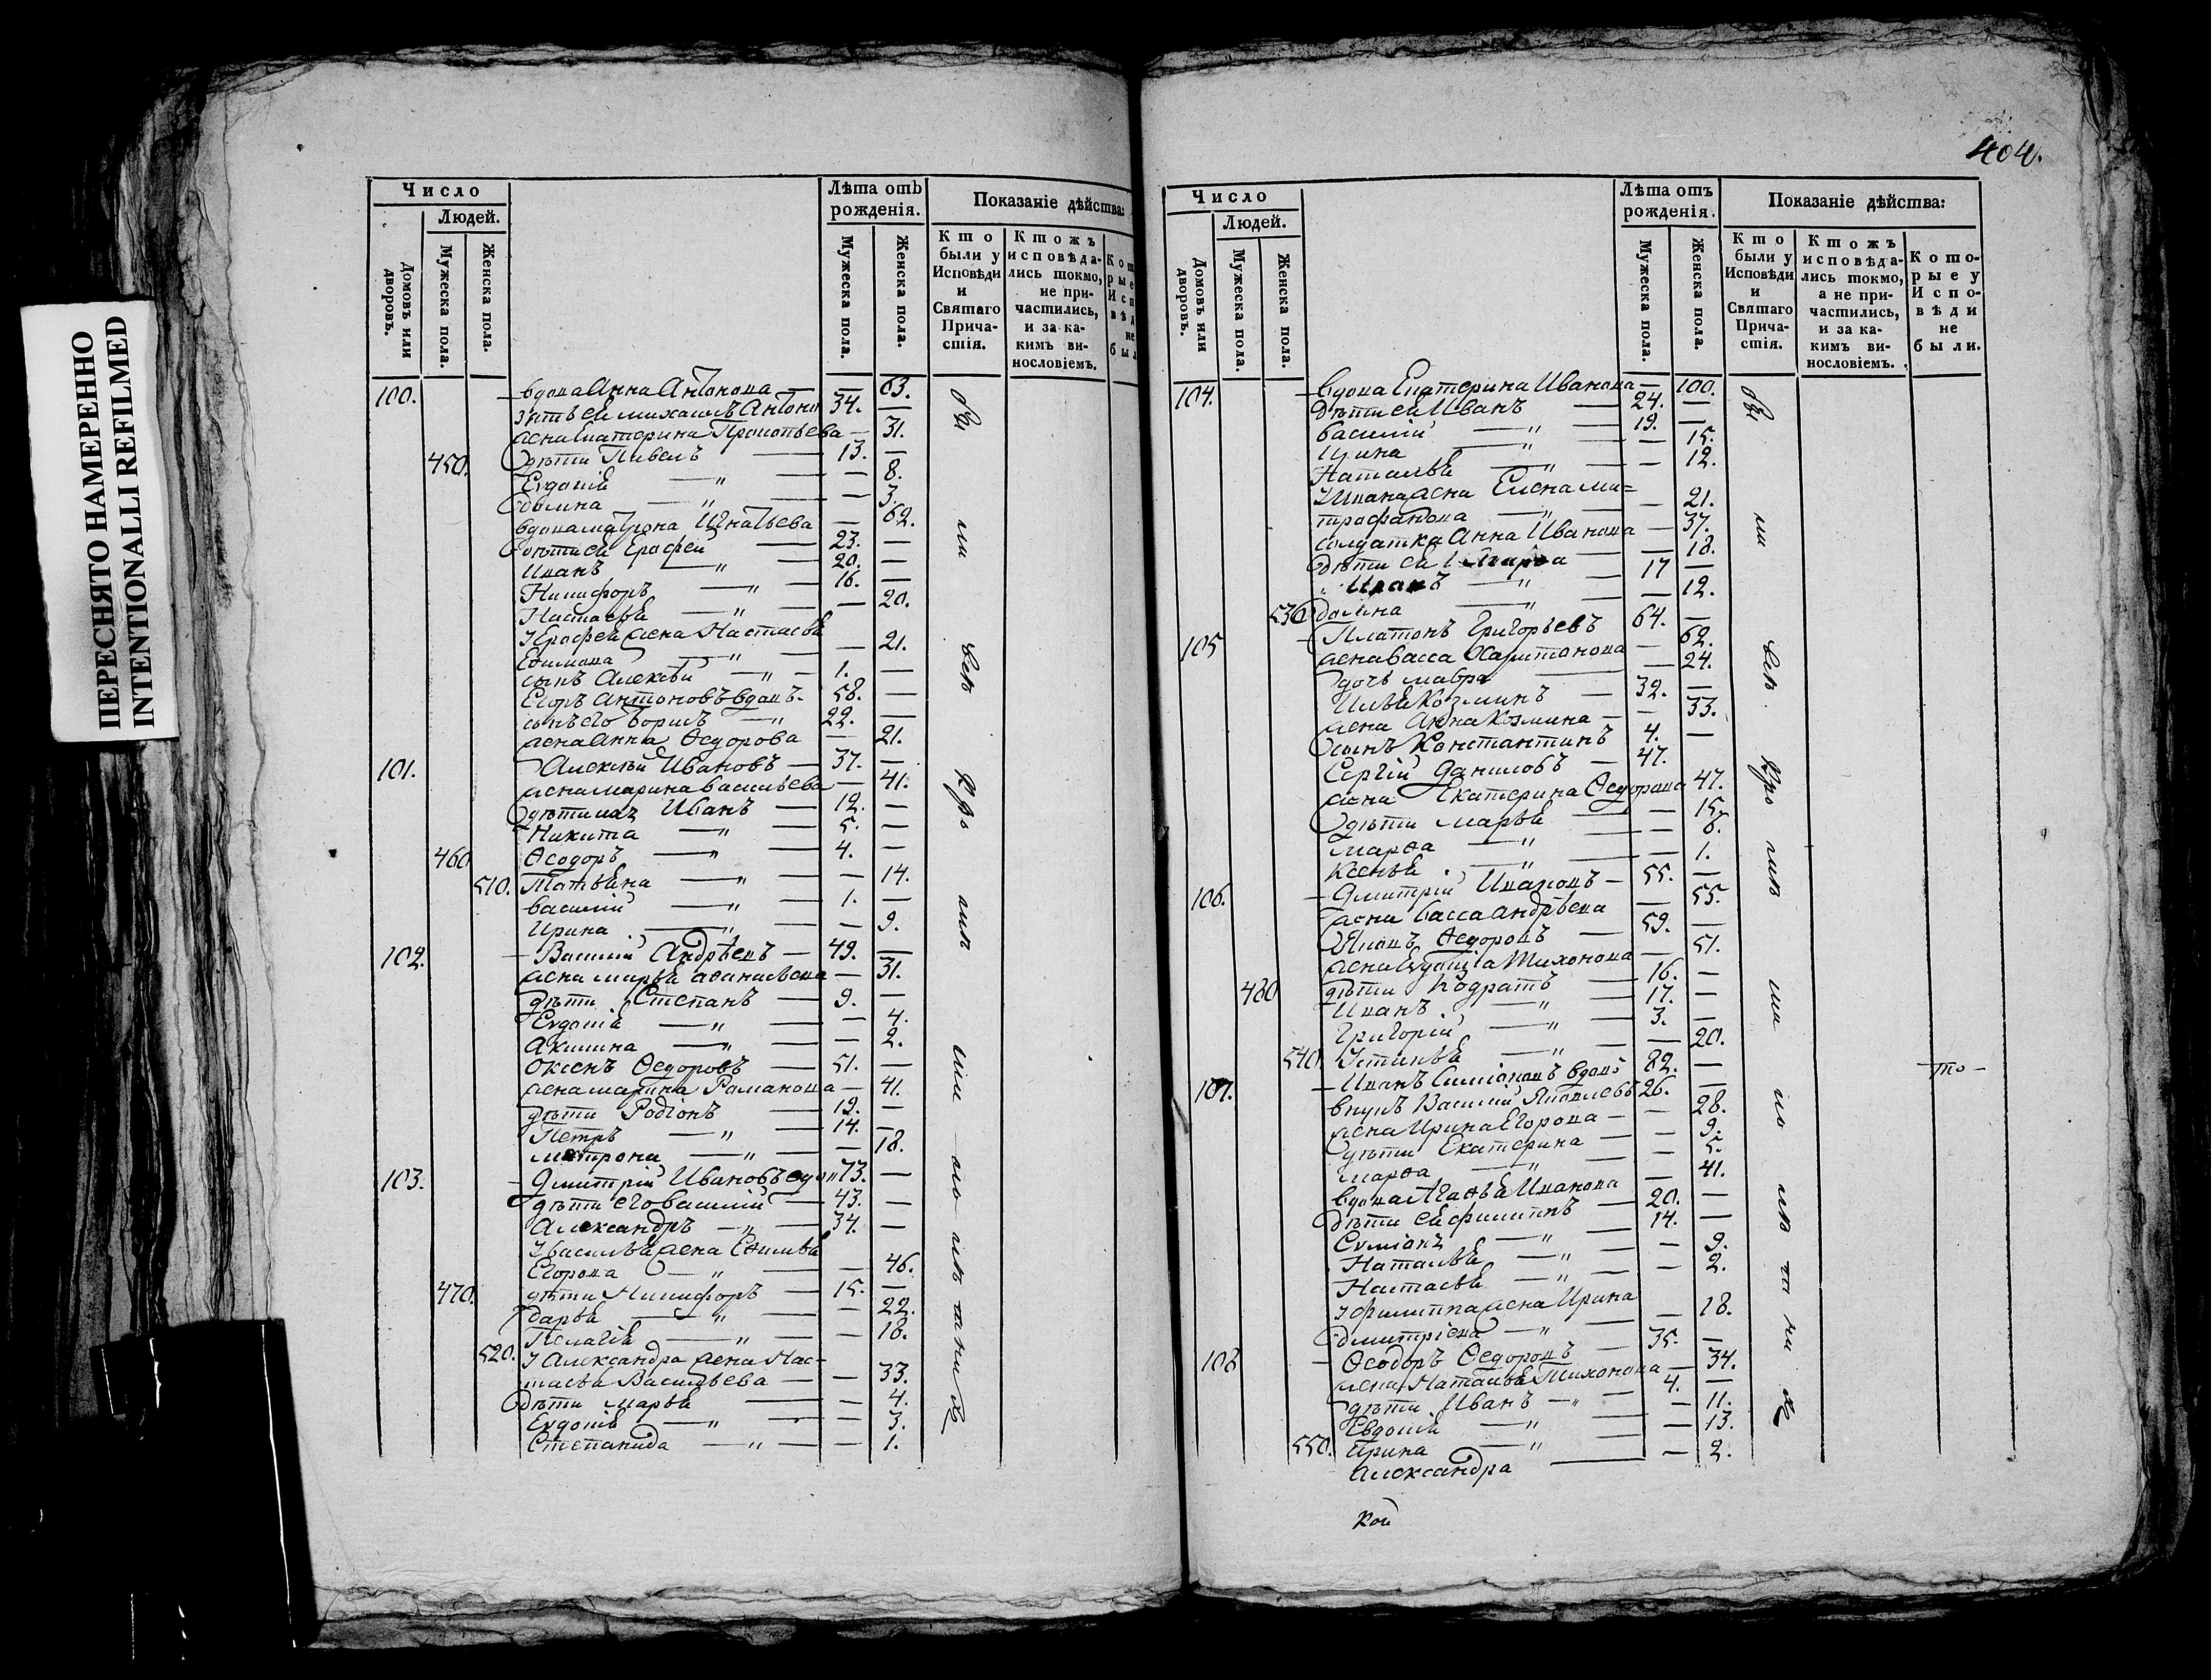 ПЕРЕСНЯТО НАМЕРЕННО
INTENTIONALLI REFILMED
Число
Людей.
Домовъ или дворовъ.
Мужеска пола.
Женска пола.
Лѣта отъ рожденія.
Мужеска пола.
Женска пола.
Показаніе дѣйства:
Кто были у Исповѣди и Святаго Прича-стія.
Ктожъ исповѣда-лись токмо, не при-частились, и за ка-кимъ ви-нословіемъ.
100. вдова Анна Антонова — 63.
зять ея михаилъ Антоно 34. —
жена Екатерина Прокопьева — 31.
450. дѣти Павелъ 13. —
Евдокія — 8.
домна — 3.
вдова матрона Игнатьева — 62.
дѣти ея Ерофей 23. —
Иванъ 20. —
Никифоръ 16. —
Настасья — 20.
У Ерофея жена Настасья
Ефимова — 21.
сынъ Алексѣй 1. —
Егоръ Антоновъ вдовъ 58. —
сынъ его Борисъ 22. —
жена Анна Ѳедорова — 21.
101. Алексѣй Ивановъ 37. —
жена марина васильева — 41.
дѣти ихъ Иванъ 12. —
Никита 5. —
460 Ѳеодоръ 4. —
510. Татьяна — 14.
василій 1. —
Ирина — 9.
102. Василій Андрѣевъ 49. —
жена марья аѳанасьева — 31.
дѣти Степанъ 9. —
Евдокія — 4.
Акилина — 2.
Ѳедоровъ 51. —
жена марина Романова — 41.
дѣти Родіонъ 12. —
Петръ 14. —
матрона — 18.
103. Дмитрій Ивановъ вдов 73. —
дѣти его василій 43. —
Александръ 34. —
У василья жена
Егорова — 46.
470. дѣти Никифоръ 15. —
дарья — 22.
Пелагія — 18.
520. У Александра жена Нас-
тасья Васильева — 33.
дѣти марья — 4.
Евдокія — 3.
Степанида — 1.
404.
Число
Людей.
Домовъ или дворовъ.
Мужеска пола.
Женска пола.
Лѣта отъ рожденія.
Мужеска пола.
Женска пола.
Показаніе дѣйства:
Кто были у Исповѣди и Святаго Прича-стія.
Ктожъ исповѣда-лись токмо, а не при-частились, и за ка-кимъ ви-нословіемъ.
Кото-рые у Испо-вѣди не были.
104. вдова Екатерина Иванова — 100.
дѣти ея Иванъ 24. —
василій 19. —
Ирина — 15.
Наталья — 12.
У Ивана жена Елена ми=
трофанова — 21.
солдатка Анна Иванова — 37.
дѣти ея — 18.
Иванъ 17 —
530 домна — 12.
105 Платонъ Григорьевъ 64. —
жена васса Харитонова — 62.
дочь мавра — 24.
Илья Козминъ 32. —
жена Анна Козмина — 33.
сынъ Константинъ 4. —
Сергій Даниловъ 47.
жена Екатерина Ѳедорова 47.
дѣти марья — 15.
марѳа — 6.
Ксенья — 1.
106. Дмитрій Ивановъ 55. —
жена васса андрѣева — 55.
Ѳедоровъ 59. —
жена Евдокія Тихонова — 51.
480 дѣти Кодратъ 16. —
Иванъ 17. —
Григорій 3. —
540. Устинья — 20.
107. Иванъ Симіоновъ вдовъ 82. — то —
внукъ Василій Яковлевъ 26. —
жена Ирина Егорова — 28.
дѣти Екатерина — 9.
марѳа — 5.
вдова Агаѳья Иванова — 41.
дѣти ея филиппъ 20. —
Сѵміонъ 14. —
Наталья — 9.
Настасья — 2.
У филиппа жена Ирина
дмитріева — 18.
108 Ѳеодоръ Ѳедоровъ 35. —
жена Наталья Тихонова — 34.
дѣти Иванъ 4. —
Евдокія — 11.
550. Ирина — 13.
Александра — 2.
кой